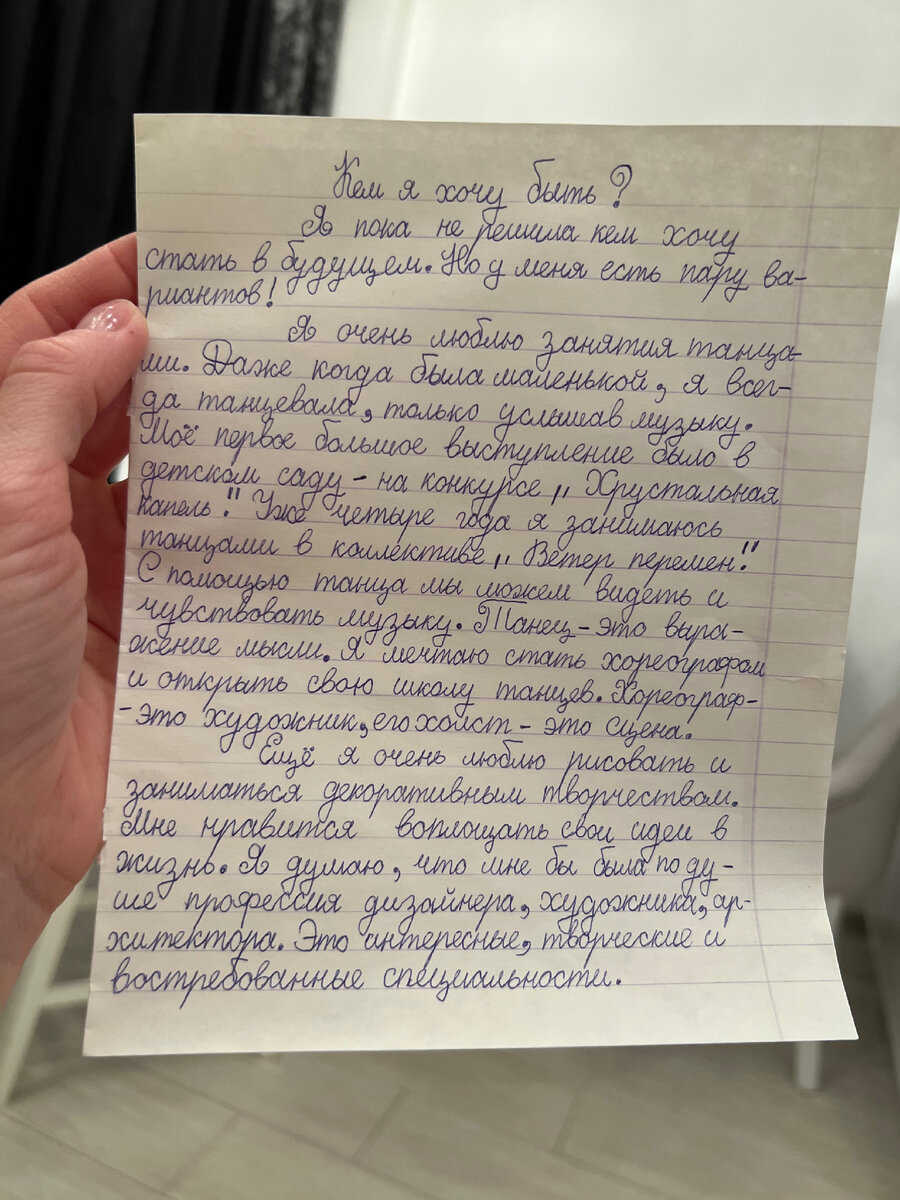 Кем я хочу быть?
Я пока не решила кем хочу
стать в будущем. Но у меня есть пару ва-
риантов!
Я очень люблю занятия танца-
ми. Даже когда была маленькой, я всег-
да танцевала, только услышав музыку.
Моё первое большое выступление было в
детском саду - на конкурсе „Хрустальная
капель". Уже четыре года я занимаюсь
танцами в коллективе „Ветер перемен".
С помощью танца мы можем видеть и
чувствовать музыку. Танец - это выра-
жение мысли. Я мечтаю стать хореографом
и открыть свою школу танцев. Хореограф-
-это художник, его холст - это сцена.
Ещё я очень люблю рисовать и
заниматься декоративным творчеством.
Мне нравится воплощать свои идеи в
жизнь. Я думаю, что мне бы была по ду-
ше профессия дизайнера, художника, ар-
хитектора. Это интересные, творческие и
востребованные специальности.